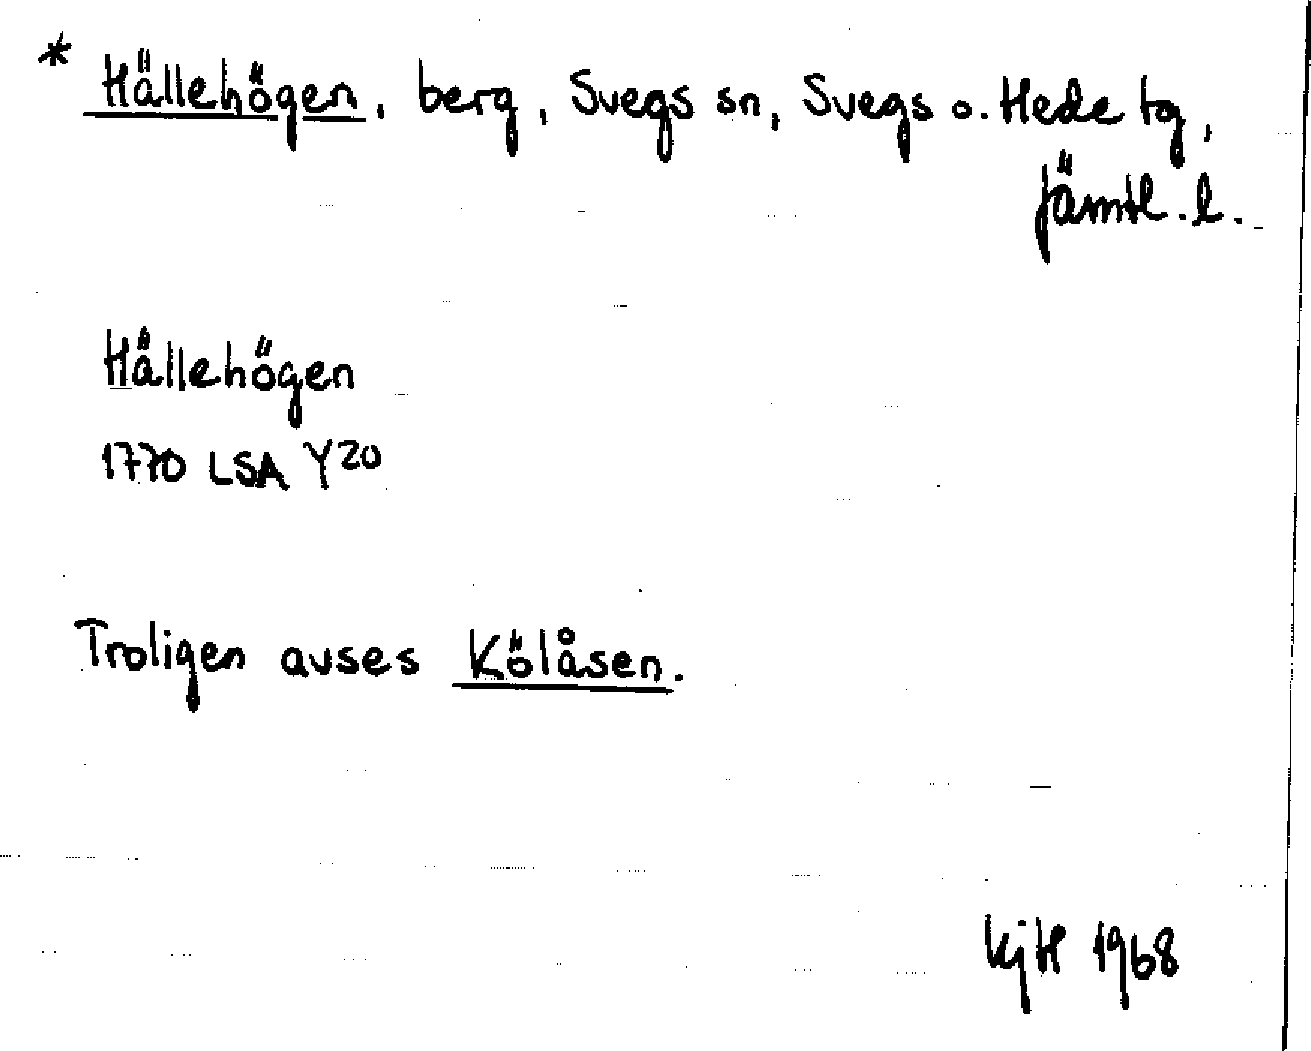 * Hällehögen, berg, Svegs sn, Svegs o. Hede tg,
Jämtl. l.
Hållehögen
1770 LSA Y20
Troligen avses Kölåsen.
KjH 1968